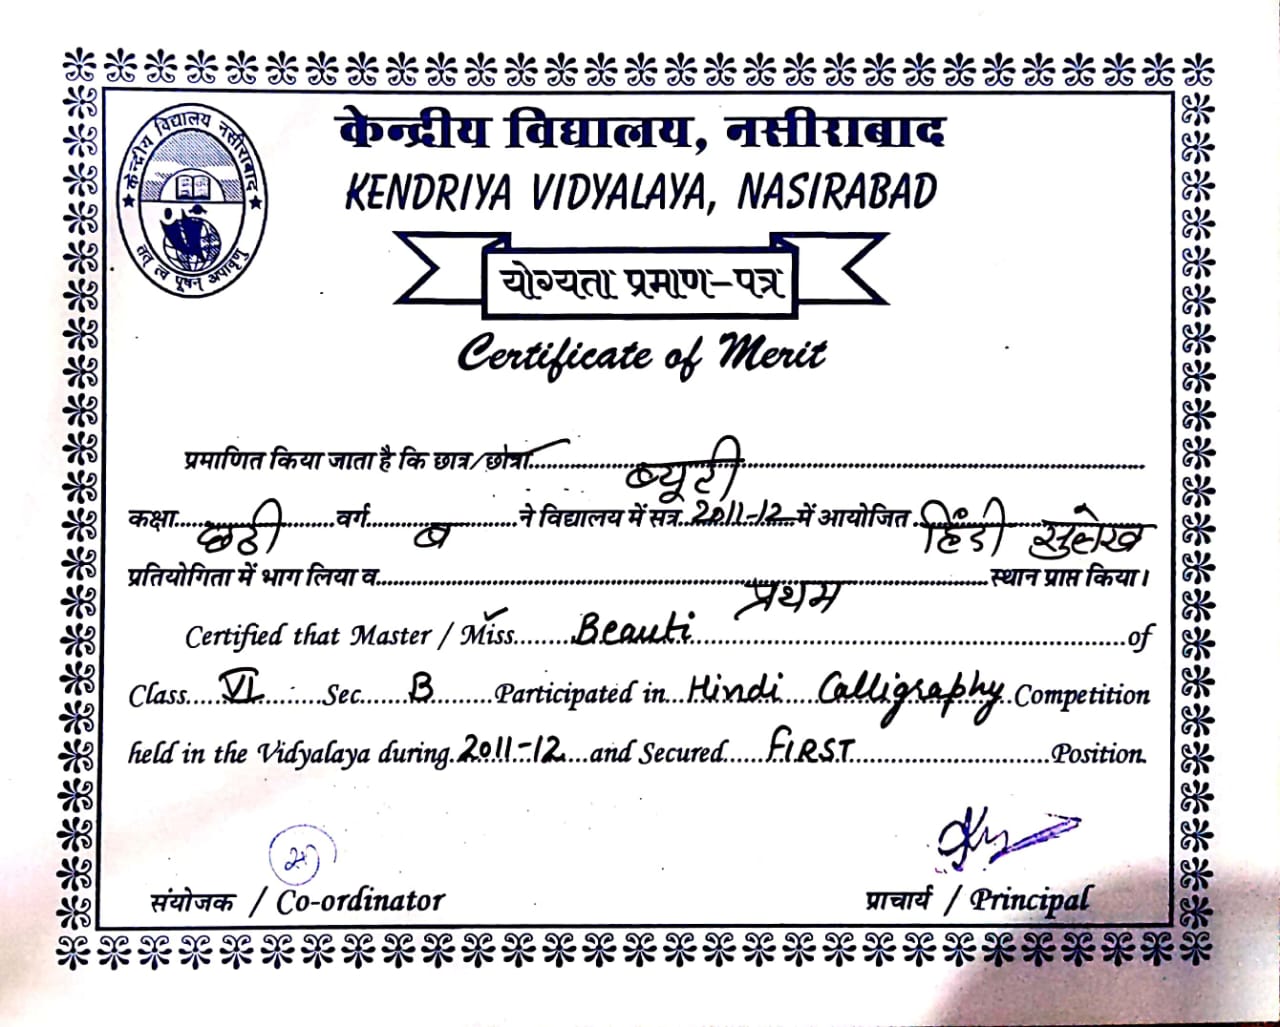 केन्द्रीय विद्यालय नसीराबाद
तत् त्वं पूषन् अपावृणु
केन्द्रीय विद्यालय, नसीराबाद
KENDRIYA VIDYALAYA, NASIRABAD
योग्यता प्रमाण-पत्र
Certificate of Merit
प्रमाणित किया जाता है कि छात्र/छात्रा ब्यूटी
कक्षा छठी वर्ग ब ने विद्यालय में सत्र 2011-12 में आयोजित हिंदी सुलेख
प्रतियोगिता में भाग लिया व प्रथम स्थान प्राप्त किया।
Certified that Master / Miss Beauti of
Class VI Sec B Participated in Hindi Calligraphy Competition
held in the Vidyalaya during 2011-12 and Secured FIRST Position
संयोजक / Co-ordinator
प्राचार्य / Principal